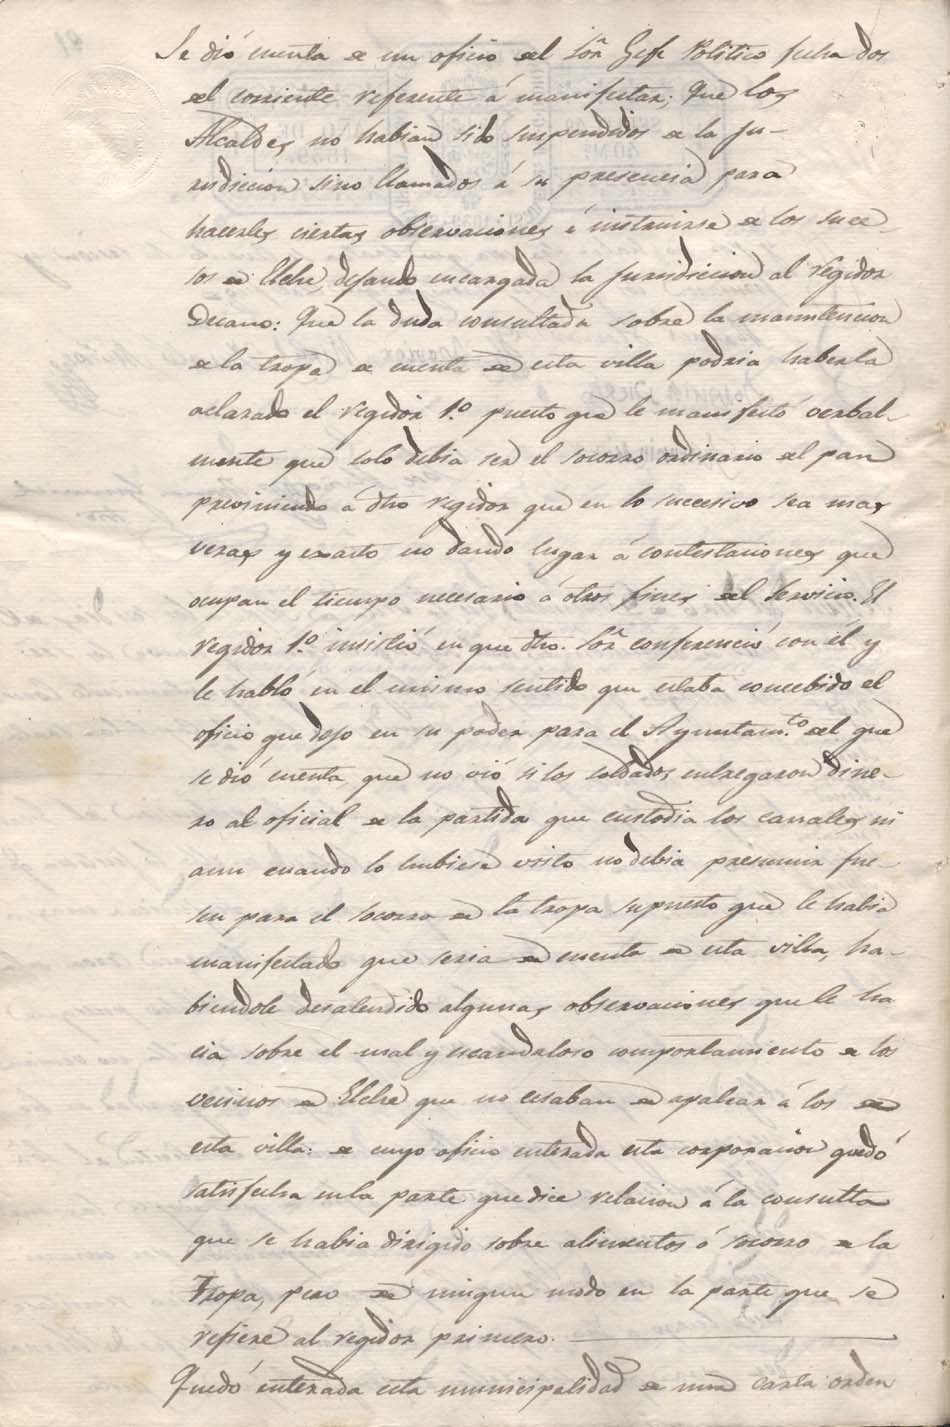 Se dió cuenta de un oficio del Sõr Gefe Politico fecha dos
del corriente referente á manifestar: Que los
Alcaldes no habian sido suspendidos de la Ju-
risdiccion sino llamados á su presencia para
hacerles ciertas observaciones é instruirse de los suce-
sos de Elche dejando encargada la Jurisdiccion al Regidor
Decano: Que la duda consultada sobre la manutencion
de la tropa de cuenta de esta villa podria haberla
aclarado el regidor 1.º puesto que le manifestó verbal-
mente que solo debia ser el socorro ordinario del pan
previniendo á dho regidor que en lo sucesivo sea mas
veraz y exacto no dando lugar á contestaciones que
ocupan el tiempo necesario á otros fines del Servicio. El
regidor 1.º insistió en que dho. Sõr conferenció con él y
le habló en el mismo sentido que estaba concebido el
oficio que dejo en su poder para el Ayuntam.to del que
se dió cuenta, que no vió si los soldados entregaron dine-
ro al oficial de la partida que custodia los canales ni
aun cuando lo hubiese visto no debia presumir fue-
sen para el socorro de la tropa supuesto que le habia
manifestado que seria de cuenta de esta villa, ha-
biendole desatendido algunas observaciones que le ha
cia sobre el mal y escandaloso comportamiento de los
vecinos de Elche que no cesaban de apalear á los de
esta villa: de cuyo oficio enterada esta corporacion quedó
satisfecha en la parte que dice relacion á la consulta
que se habia dirigido sobre alimentos ó socorro de la
Tropa, pero de ningun modo en la parte que se
refiere al regidor primero.
Quedó enterada esta municipalidad de una carta orden